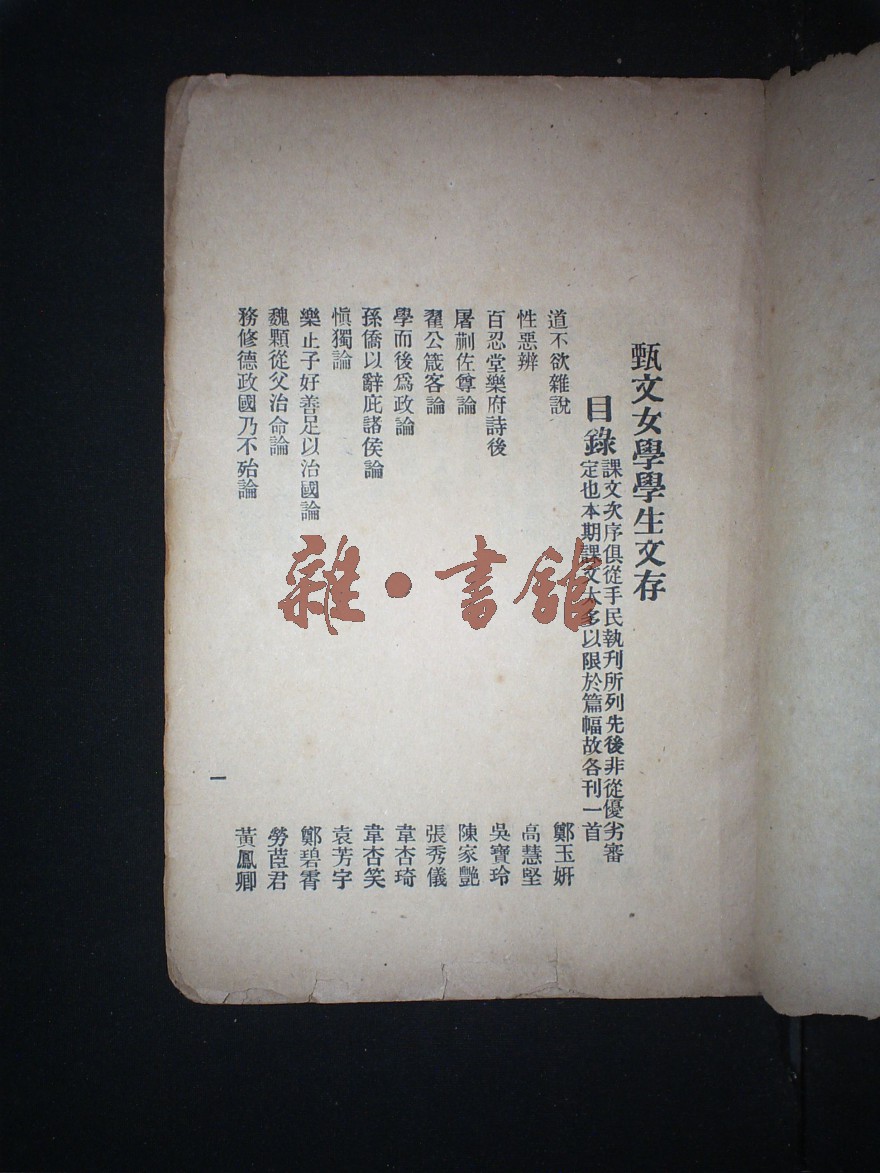 甄文女學學生文存
目錄
課文次序俱從手民執刋所列先後非從優劣審
定也本期課文太多以限於篇幅故各刊一首
道不欲雜說 鄭玉妍
性惡辨 高慧堅
百忍堂樂府詩後 吳寶玲
屠蒯佐尊論 陳家艷
翟公箴客論 張秀儀
學而後爲政論 韋杏琦
孫僑以辭庇諸侯論 韋杏笑
愼獨論 袁芳宇
樂止子好善足以治國論 鄭碧霄
魏顆從父治命論 勞茝君
務修德政國乃不殆論 黃鳳卿
一
雜·書館